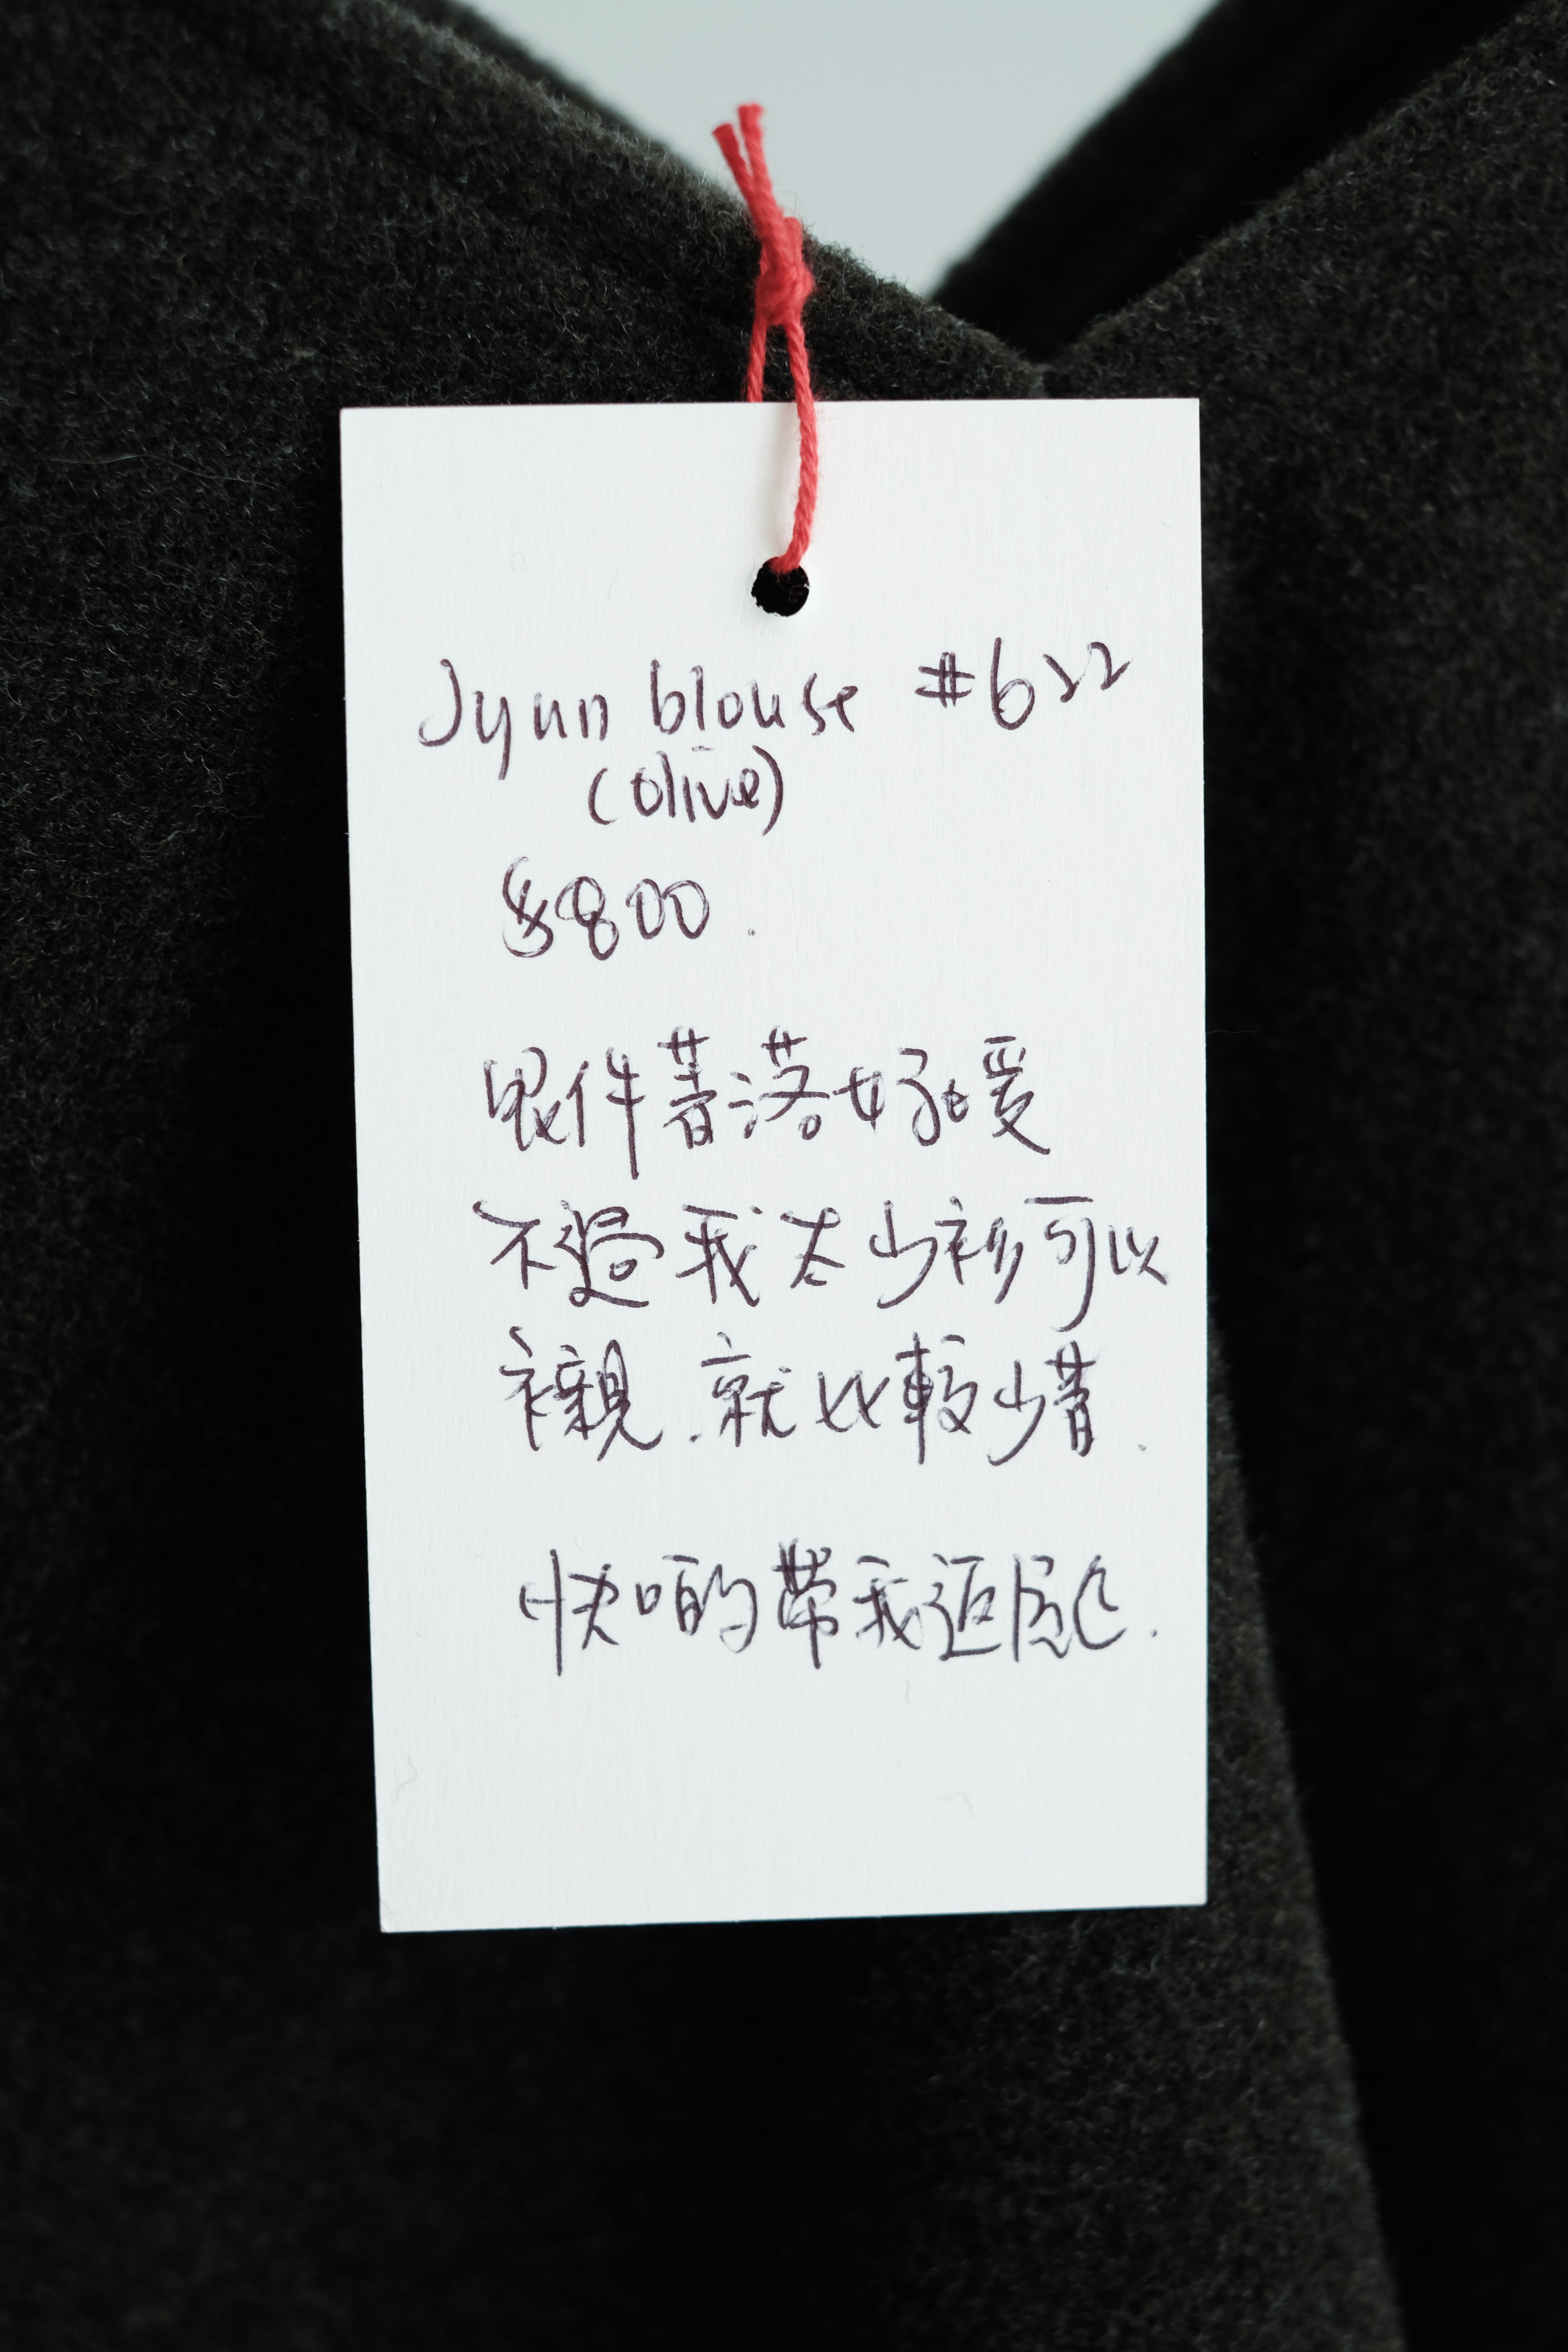 Jynn blouse #622
(olive)
$800.
呢件著落好暖
不過我太少衫可以
襯.就比較少著.
快啲帶我返屋企.